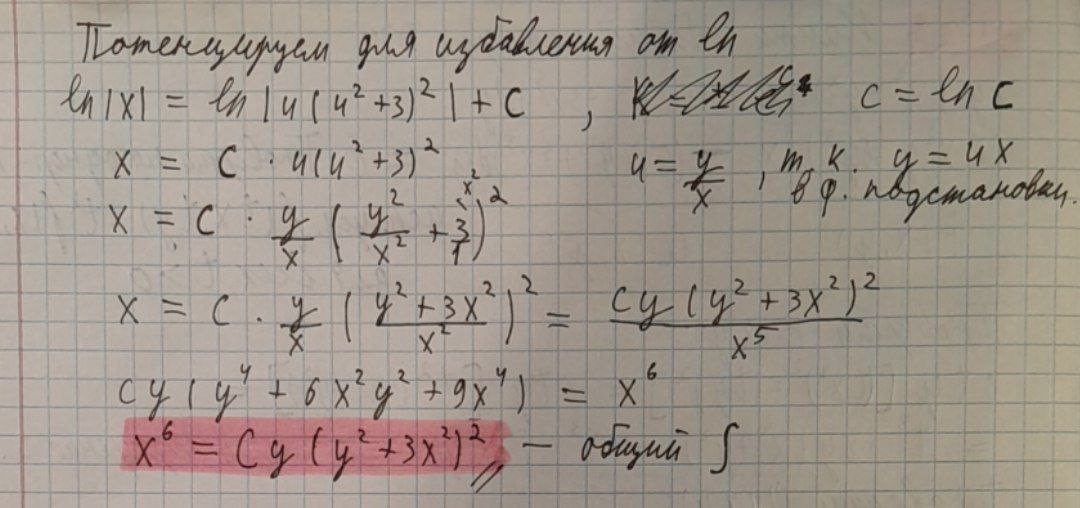 Потенцируем для избавления от ln
ln|x| = ln|u(u²+3)²| + C , C = ln C
x = C · u(u²+3)² u = y/x , т.к. y = ux
в ф. подстановки.
x = C · y/x (y²/x² + 3/1^{\x²})²
x = C · y/x ((y²+3x²)/x²)² = Cy(y²+3x²)²/x⁵
Cy(y⁴ + 6x²y² + 9x⁴) = x⁶
x⁶ = Cy(y²+3x²)² // – общий ∫